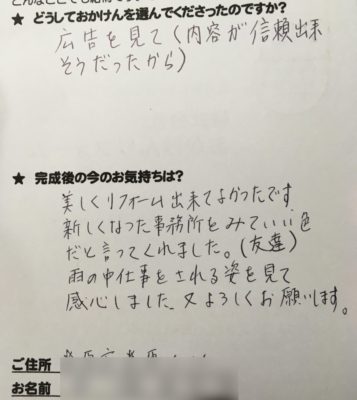 ★ どうしておかけんを選んでくださったのですか?
広告を見て(内容が信頼出来
そうだったから)
★ 完成後の今のお気持ちは?
美しくリフォーム出来てよかったです
新しくなった事務所をみていい色
だと言ってくれました。(友達)
雨の中仕事をされる姿を見て
感心しました。又よろしくお願いします。
ご住所
お名前